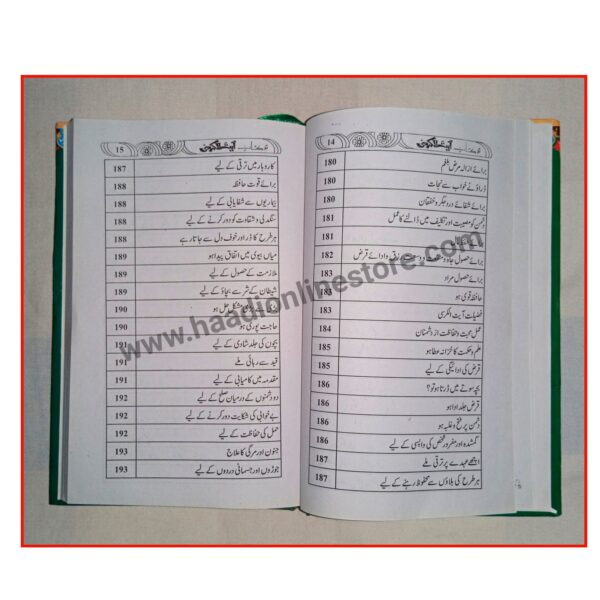 14
برائے ازالہ مرض بلغم 180
ڈراؤنے خواب سے نجات 180
برائے شفائے درد جگر و خفقان 180
دشمن کو مصیبت اور تکلیف میں ڈالنے کا عمل 181
181
برائے حصول جاہ و منفعت و وسعت رزق و ادائے قرض 182
برائے حصول مراد 183
حافظہ قوی ہو 183
فضیلت آیت الکرسی 183
عمل محبت و حفاظت از دشمنان 184
علم و حکمت کا خزانہ عطا ہو 185
قرض کی ادائیگی کے لیے 185
بچہ سوتے میں ڈرتا ہو تو؟ 186
قرض جلد ادا ہو 186
دشمن پر فتح و غلبہ ہو 186
گمشدہ اور مفرور شخص کی واپسی کے لیے 186
اچھے عہدے پر ترقی ملے 187
ہر طرح کی بلاؤں سے محفوظ رہنے کے لیے 187
15
کاروبار میں ترقی کے لیے 187
برائے قوت حافظہ 188
بیماریوں سے شفایابی کے لیے 188
سنگدلی و شقاوت کو دور کرنے کے لیے 188
ہر طرح کا ڈر اور خوف دل سے جاتا رہے 188
میاں بیوی میں اتفاق پیدا ہو 189
ملازمت کے حصول کے لیے 189
شیطان کے شر سے بچاؤ کے لیے 189
مشکل حل ہو 190
حاجت پوری ہو 190
بچوں کی جلد شادی کے لیے 191
قید سے رہائی ملے 191
مقدمہ میں کامیابی کے لیے 191
دو دشمنوں کے درمیان صلح کے لیے 192
بے خوابی کی شکایت دور کرنے کے لیے 192
حمل کی حفاظت کے لیے 192
جنون اور مرگی کا علاج 193
جوڑوں اور جسمانی دردوں کے لیے 193
www.haadionlinestore.com